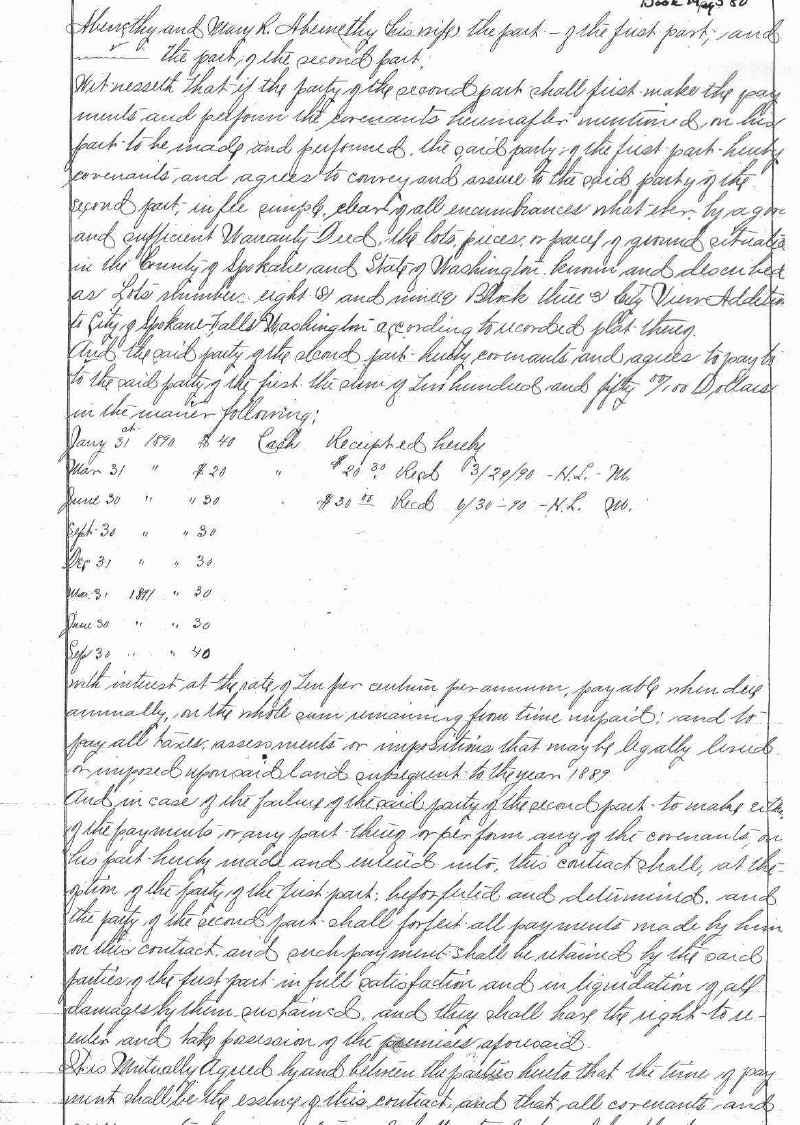 Book M pg 380
Abernethy and Mary R. Abernethy his wife the part - of the first part, and
the part of the second part.
Witnesseth that if the party of the second part shall first make the pay
ments and perform the covenants hereinafter mentioned, on his
part to be made and performed, the said party of the first part hereby
covenants and agrees to convey and assure to the said party of the
second part, in fee simple, clear of all encumbrances what ever, by a goo
and sufficient Warranty Deed, the lots, pieces, or parcel of ground situate
in the County of Spokane and State of Washington. known and described
as Lots number eight (8) and nine 9 Block three 3 City View Addition
to City of Spokane Falls Washington according to recorded plat thereof.
And the said party of the second part hereby covenants and agrees to pay to
to the said party of the first the sum of Two hundred and fifty 00/100 Dollars
in the manner following:
Jany 31st 1890 $40 Cash Receipted hereby
Mar 31 " $20 " $20 00 Recd 3/29/90 - H.L. - M.
June 30 " " 30 $30 00 Recd 6/30-90 - H.L. M.
Sept 30 " " 30
Dec 31 " " 30
Mar 31 1891 " 30
June 30 " " 30
Sep 30 " " 40
with interest at the rate of Ten per centum per annum, payable when due
annually, on the whole sum remaining from time unpaid; and to
pay all taxes, assessments or impositions that may be legally levied
or imposed upon said land subsequent to the year 1889
And in case of the failure of the said party of the second part to make either
of the payments or any part thereof or perform any of the covenants on
his part hereby made and entered into, this contract shall, at the
option of the party of the first part; be forfeited and determined. and
the party of the second part shall forfeit all payments made by him
on this contract. and such payment shall be retained by the said
parties of the first part in full satisfaction and in liquidation of all
damages by them sustained, and they shall have the right to re-
enter and take possession of the premises aforesaid.
It is Mutually Agreed by and between the parties hereto that the time of pay
ment shall be the essence of this contract, and that all covenants and